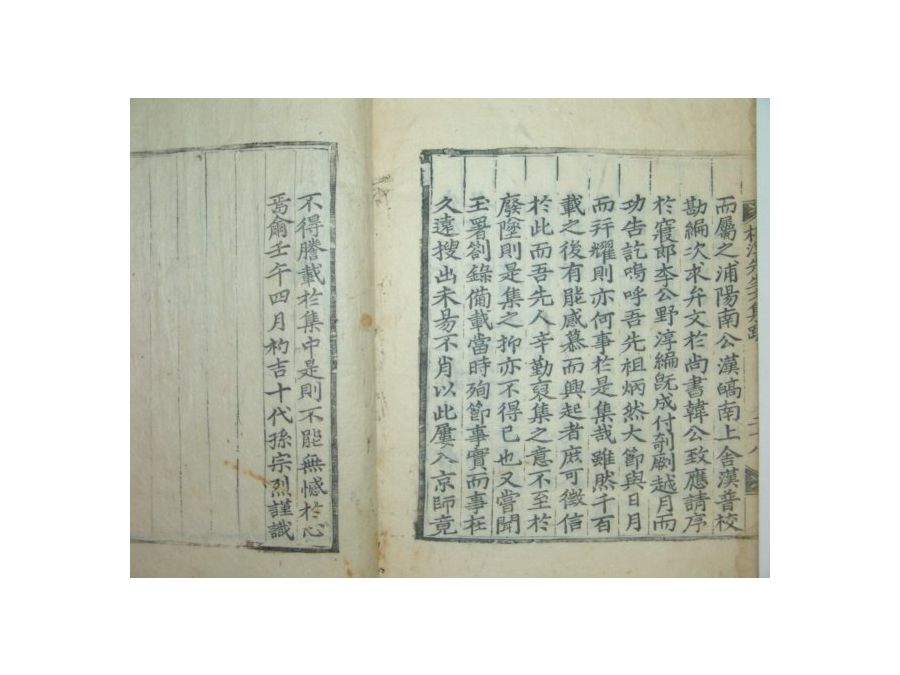 而屬之浦陽南公漢皜南上舍漢普校
勘編次求弁文於尚書韓公致應請序
於寢郎李公野淳編旣成付剞劂越月而
功告訖嗚呼吾先祖炳然大節與日月
而幷耀則亦何事於是集哉雖然千百
載之後有能感慕而興起者庶可徵信
於此而吾先人辛勤裒集之意不至於
廢墜則是集之抑亦不得已也又嘗聞
玉署劄錄備載當時殉節事實而事在
久遠搜出未易不肖以此屢入京師竟
不得謄載於集中是則不能無憾於心
焉爾壬午四月初吉十代孫宗烈謹識